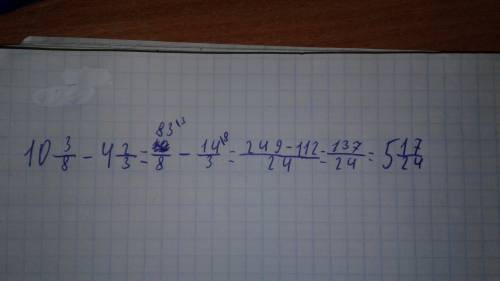 10 3/8 - 4 2/3 = 83\3/8 - 14\8/3 = 249-112/24 = 137/24 = 5 17/24